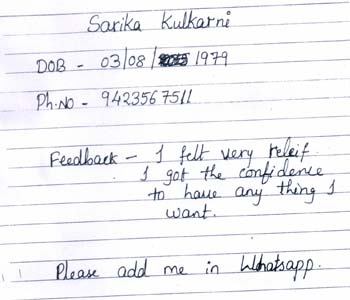 Sarika Kulkarni
DOB - 03/08/1979
Ph.No - 9423567511
Feedback - I felt very releif
I got the confidence
to have any thing I
want.
Please add me in Whatsapp.